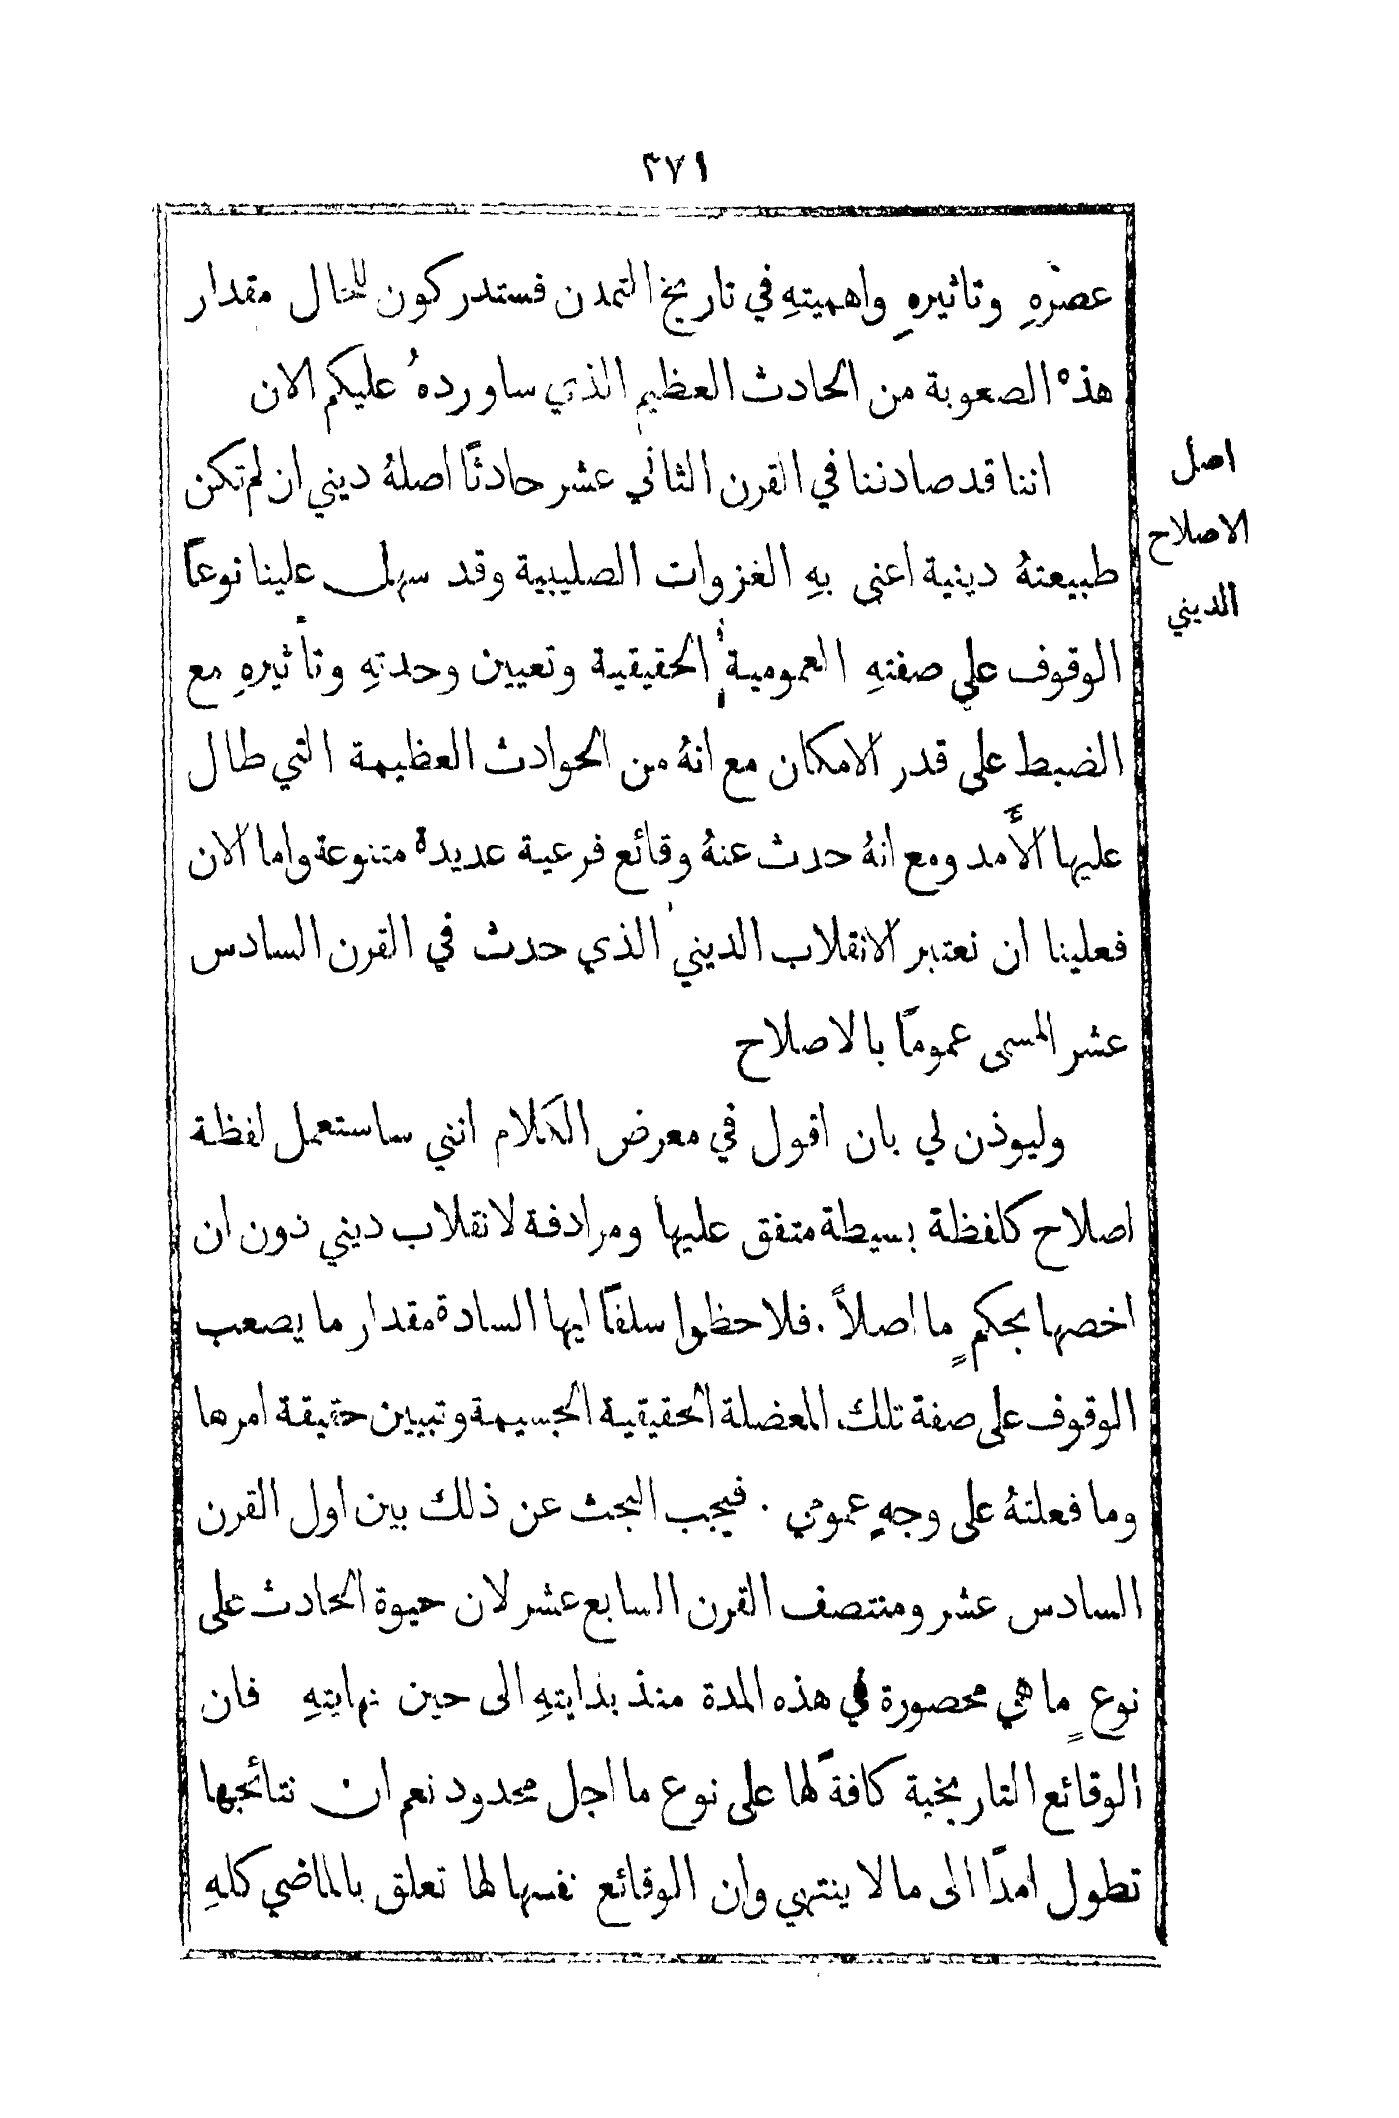 ٣٧١
عصرهِ وتاثيرهِ واهميتهِ في تاريخ التمدن فستدركون للحال مقدار
هذه الصعوبة من الحادث العظيم الذي ساوردهُ عليكم الان
اصل
الاصلاح
الديني
اننا قد صادفنا في القرن الثاني عشر حادثًا اصلهُ ديني ان لم تكن
طبيعتهُ دينية اعني بهِ الغزوات الصليبية وقد سهل علينا نوعًا
الوقوف على صفتهِ العمومية الحقيقية وتعيين وحدتهِ وتأثيرهِ مع
الضبط على قدر الامكان مع انهُ من الحوادث العظيمة التي طال
عليها الأمد ومع انهُ حدث عنهُ وقائع فرعية عديدة متنوعة واما الان
فعلينا ان نعتبر الانقلاب الديني الذي حدث في القرن السادس
عشر المسمى عمومًا بالاصلاح
وليوذن لي بان اقول في معرض الكلام انني ساستعمل لفظة
اصلاح كلفظة بسيطة متفق عليها ومرادفة لانقلاب ديني دون ان
اخصها بحكمٍ ما اصلاً . فلاحظوا سلفًا ايها السادة مقدار ما يصعب
الوقوف على صفة تلك المعضلة الحقيقية الجسيمة وتبيين حقيقة امرها
وما فعلتهُ على وجهٍ عمومي . فيجب البحث عن ذلك بين اول القرن
السادس عشر ومنتصف القرن السابع عشر لان حيوة الحادث على
نوعٍ ما هي محصورة في هذه المدة منذ بدايتهِ الى حين نهايتهِ فان
الوقائع التاريخية كافةً لها على نوع ما اجل محدود نعم ان نتائجها
تطول امدًا الى ما لا ينتهي وان الوقائع نفسها لها تعلق بالماضي كلهِ